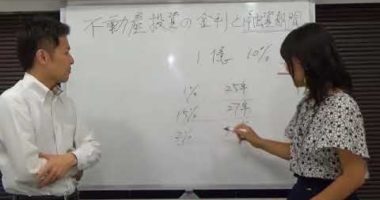 不動産投資の金利と融資期間
1億 10%
1% 25年
1.5% 27年
2%